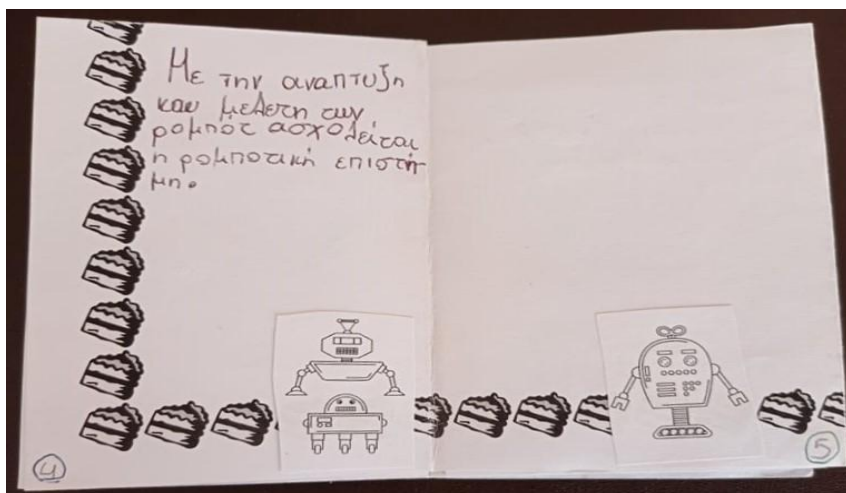 Με την αναπτυξη
και μελετη των
ρομπότ ασχολείται
η ρομποτική επιστή-
μη.
4
5